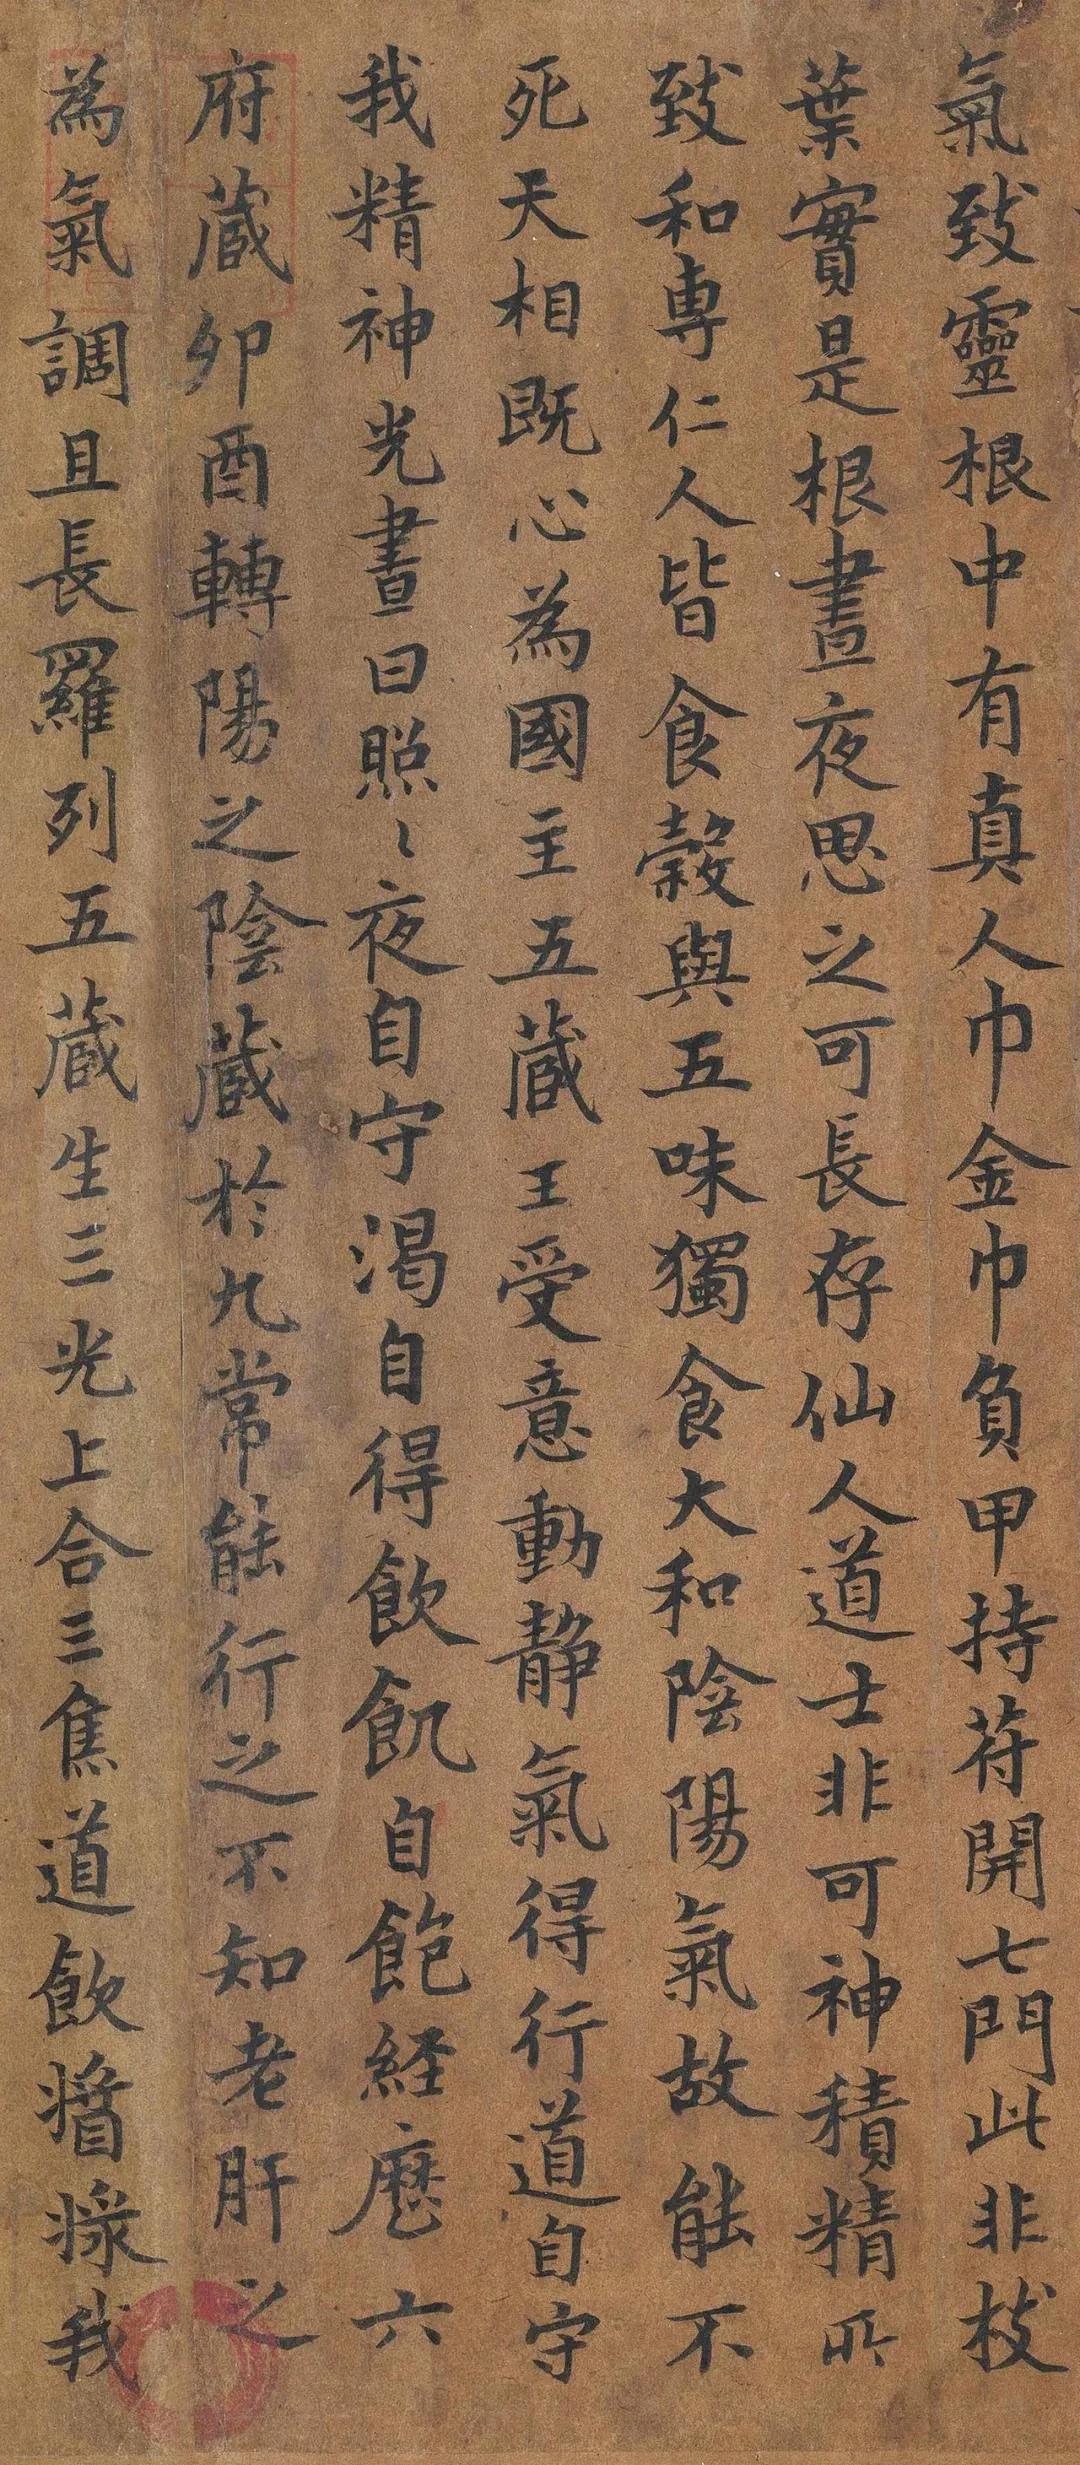 氣致靈根中有真人巾金巾負甲持苻開七門此非枝
葉實是根晝夜思之可長存仙人道士非可神積精所
致和専仁人皆食糓與五味獨食大和陰陽氣故能不
死天相既心為國主五蔵王受意動静氣得行道自守
我精神光晝日照〻夜自守渴自得飲飢自飽経歷六
府蔵卯酉轉陽之陰蔵於九常能行之不知老肝之
為氣調且長羅列五蔵生三光上合三焦道飲醬𤖆我